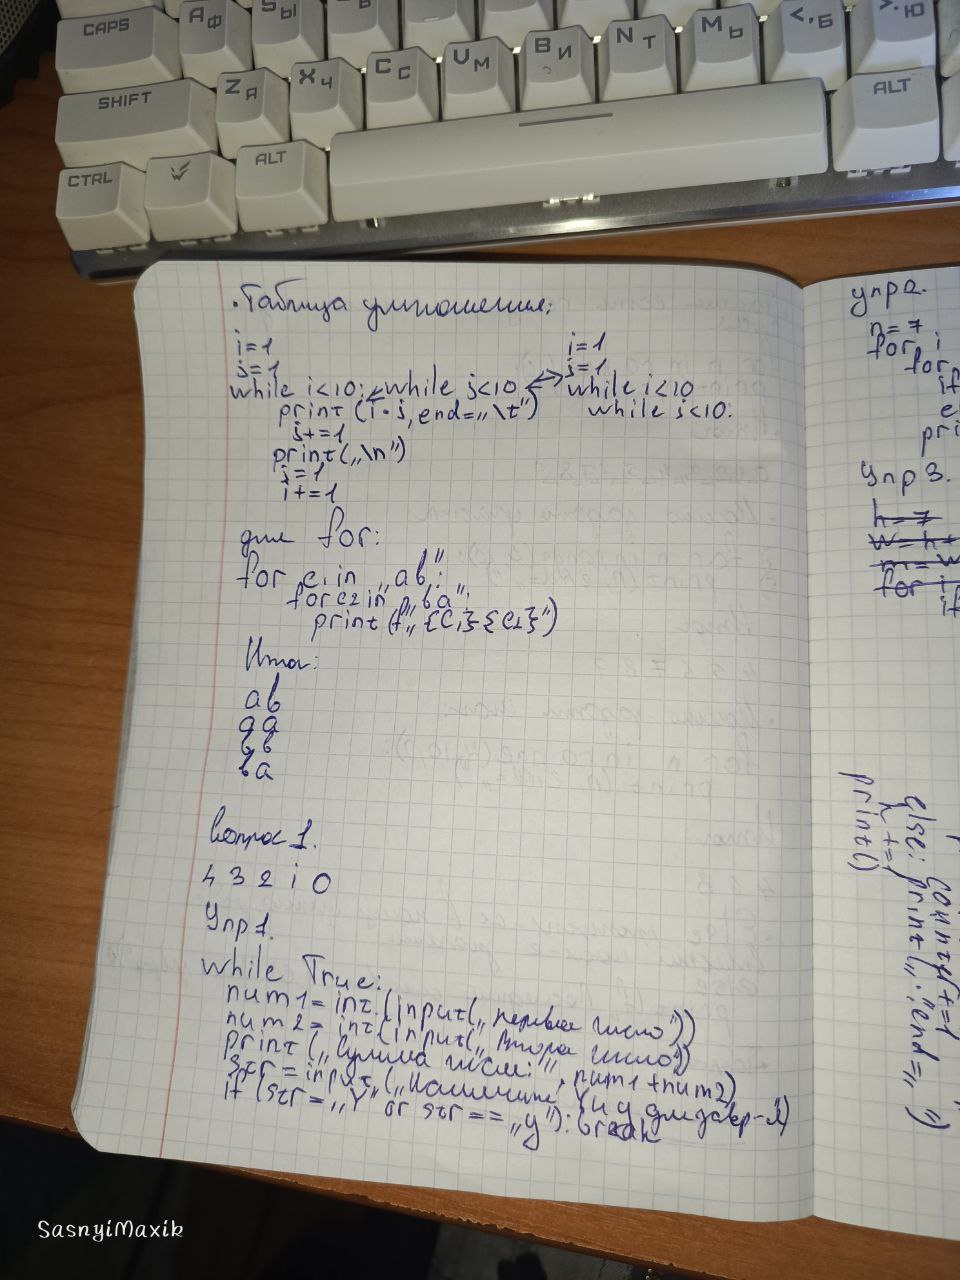 CAPS
Ф
Ы
SHIFT
Z Я
X Ч
C С
V М
В И
N Т
М Ь
< , Б
> . Ю
ALT
CTRL
ALT
· Таблица умножения:
i=1
j=1
while i<10: while j<10
print (i · j, end=„\t")
j+=1
print(„\n")
j=1
i+=1
i=1
j=1
while i<10
while j<10:
для for:
for c1 in „ab":
for c2 in „ba":
print (f„{C1}{C2}")
Итог:
ab
aa
bb
ba
Вопрос 1.
4 3 2 1 0
Упр 1.
while True:
num1 = int (input(„первое число"))
num2 = int (input(„второе число"))
print („Сумма чисел:", num1+num2)
str = input („Напишите Y и y для завер-я")
if (str = „Y" or str == „y"): break
упр2.
n=7
for i
for
if
e
pri
Упр 3.
h=7
for i
if
else: print(„·", end=„")
count+=1
h+=1
print()
SasnyiMaxik